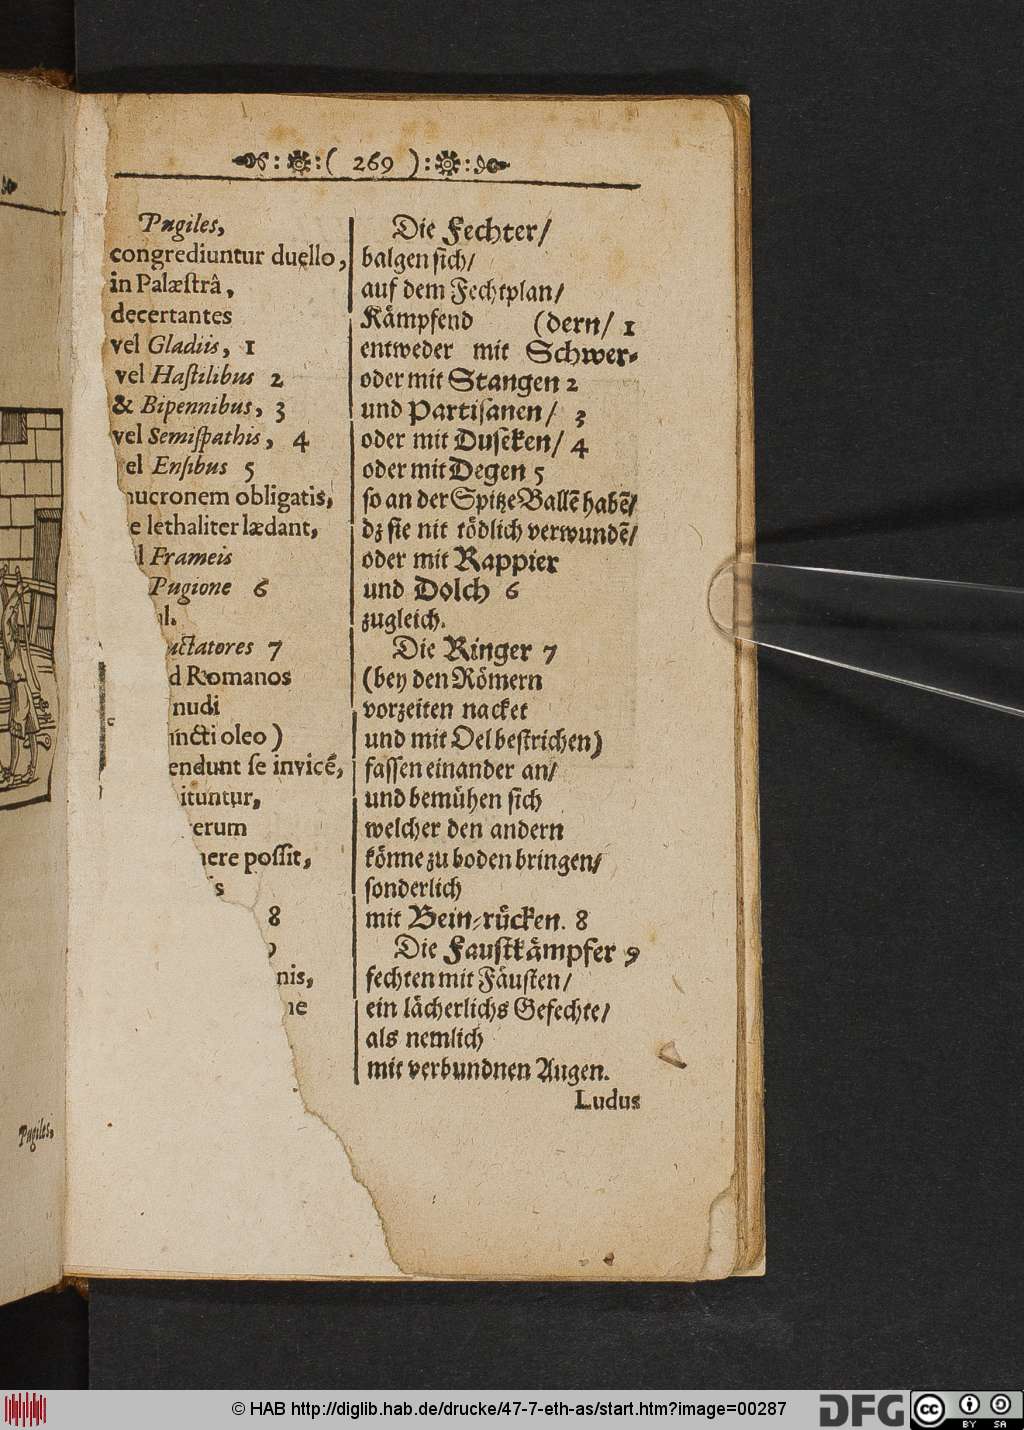 ( 269 )
Pugiles,
congrediuntur duello,
in Palæstrâ,
decertantes
vel Gladiis, 1
vel Hastilibus 2
& Bipennibus, 3
vel Semispathis, 4
el Ensibus 5
mucronem obligatis,
e lethaliter lædant,
l Frameis
Pugione 6
ul.
uctatores 7
d Romanos
nudi
incti oleo)
endunt se invicẽ,
ituntur,
erum
nere possit,
is
8
9
nis,
ne
Die Fechter/
balgen sich/
auf dem Fechtplan/
Kämpfend (dern/ 1
entweder mit Schwer-
oder mit Stangen 2
und Partisanen/ 3
oder mit Dusecken/ 4
oder mit Degen 5
so an der Spitze Ballẽ habẽ/
dz sie nit tödlich verwundẽ/
oder mit Rappier
und Dolch 6
zugleich.
Die Ringer 7
(bey den Römern
vorzeiten nacket
und mit Oel bestrichen)
fassen einander an/
und bemühen sich
welcher den andern
könne zu boden bringen/
sonderlich
mit Bein-rücken. 8
Die Faustkämpfer 9
fechten mit Fäusten/
ein lächerlichs Gefechte/
als nemlich
mit verbundnen Augen.
Ludus
Pugiles,
© HAB http://diglib.hab.de/drucke/47-7-eth-as/start.htm?image=00287
DFG
cc BY SA